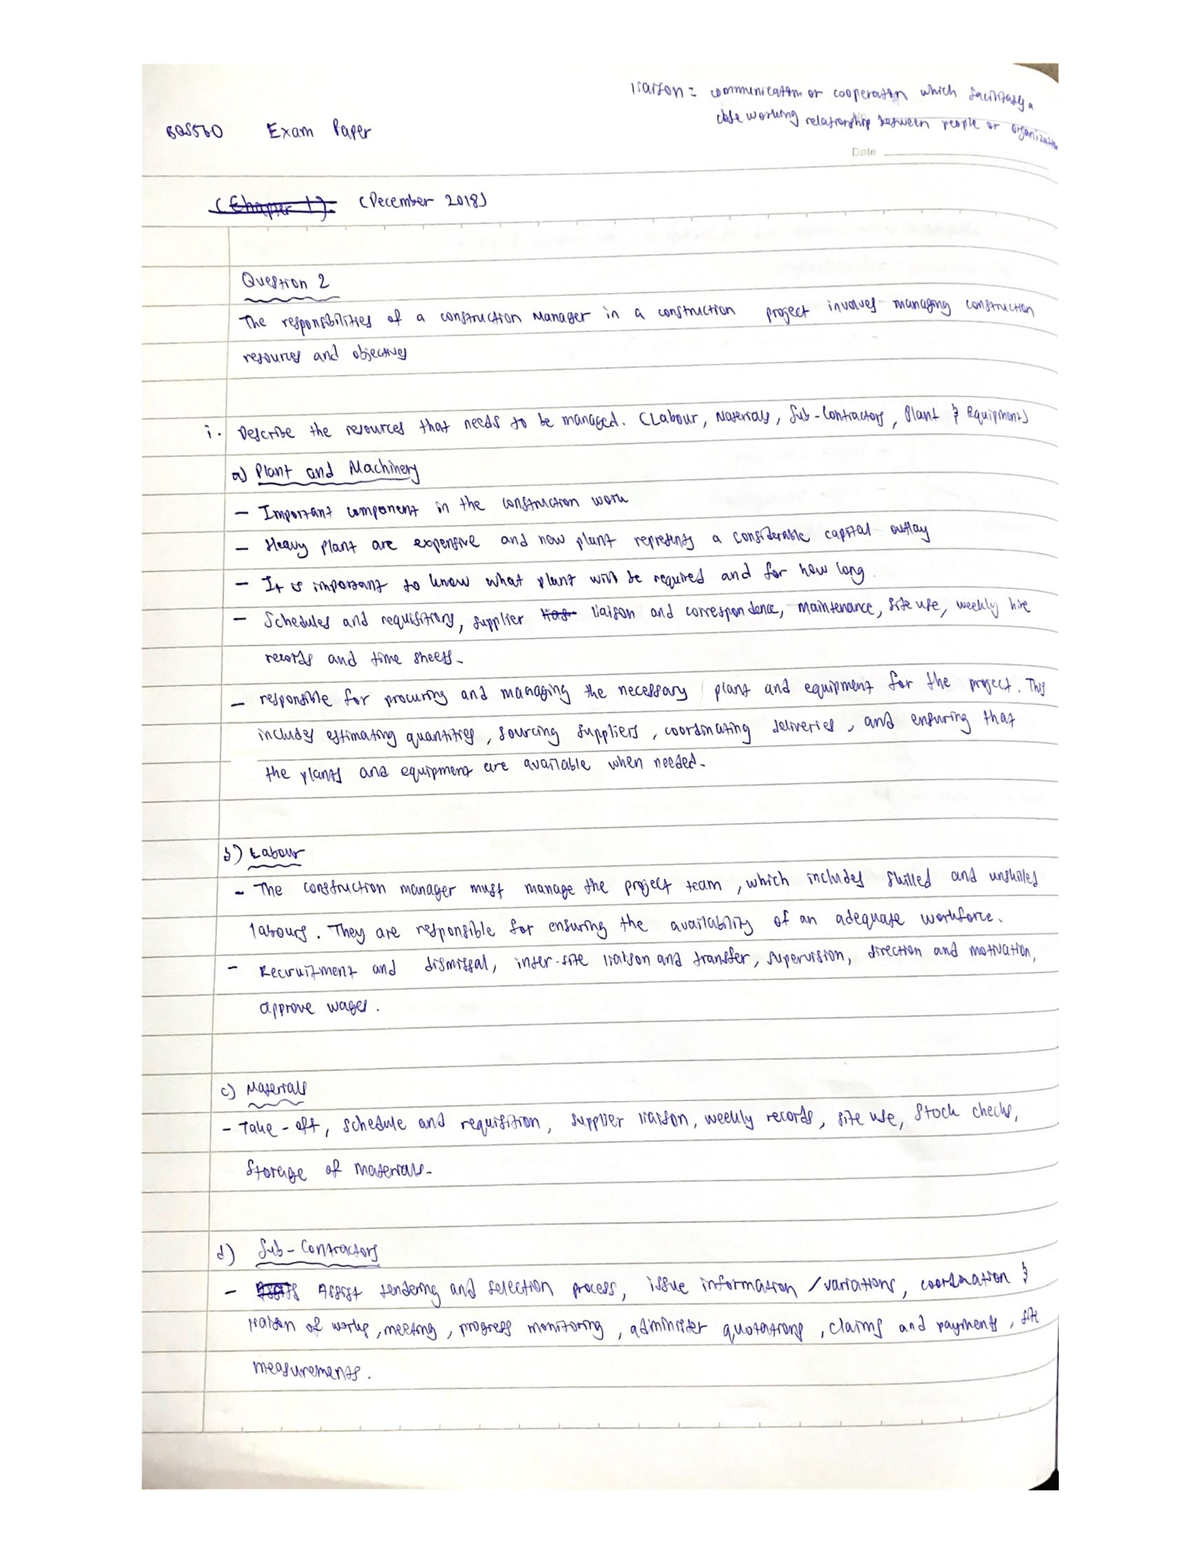 liaison = communication or cooperation which facilitates a
close working relationship between people or organizatio
BQS560 Exam Paper
Date
(Chapter 1): (December 2018)
Question 2
The responsibilities of a construction Manager in a construction project involves managing construction
resources and objectives
i. Describe the resources that needs to be managed. (Labour, Materials, Sub-Contractors, Plant & Equipments)
a) Plant and Machinery
- Important component in the construction work
- Heavy plant are expensive and new plant represents a considerable capital outlay
- It is important to know what plant will be required and for how long.
- Schedules and requisitions, supplier liaison and correspondence, maintenance, site use, weekly hire
records and time sheets.
- responsible for procuring and managing the necessary plant and equipment for the project. This
includes estimating quantities, sourcing suppliers, coordinating deliveries, and ensuring that
the plants and equipment are available when needed.
b) Labour
- The construction manager must manage the project team, which includes skilled and unskilled
labours. They are responsible for ensuring the availability of an adequate workforce.
- Recruitment and dismissal, inter-site liaison and transfer, supervision, direction and motivation,
approve wages.
c) Materials
- Take-off, schedule and requisition, supplier liaison, weekly records, site use, stock checks,
storage of materials.
d) Sub-Contractors
- Assist tendering and selection process, issue information / variations, coordination &
liaison of works, meeting, progress monitoring, administer quotations, claims and payments, site
measurements.